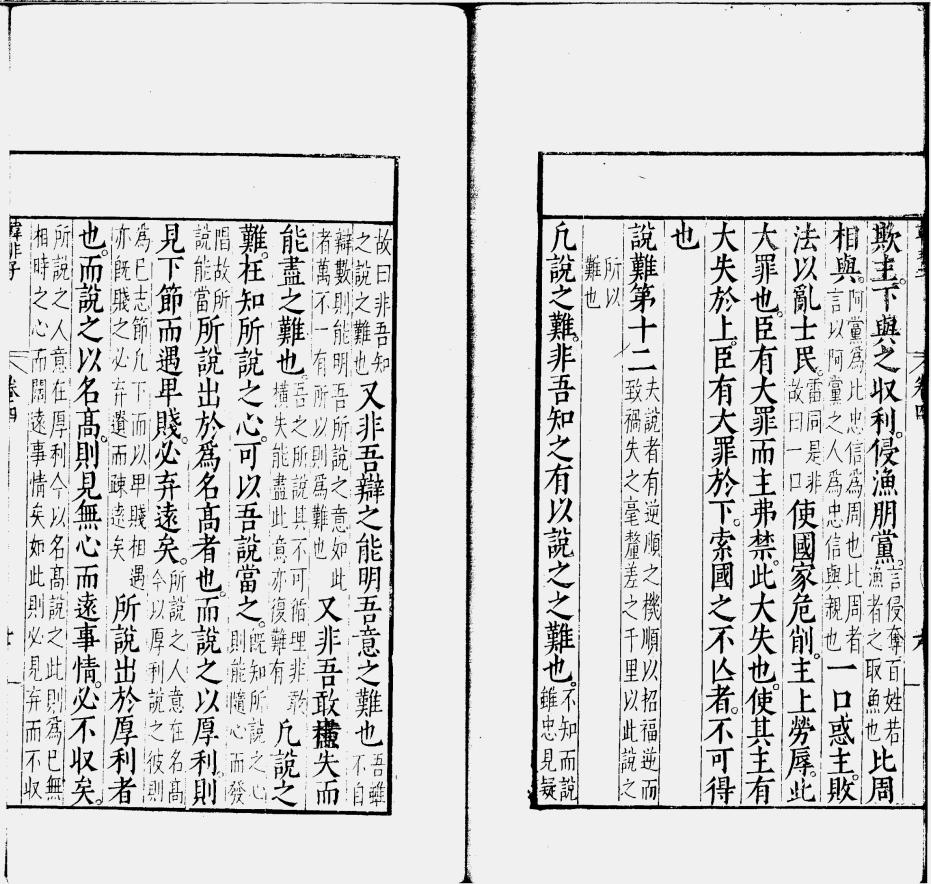 欺主下與之收利侵漁朋黨言侵奪百姓若漁者之取魚也比周
相與阿黨為比忠信為周也比周者言以阿黨之人為忠信與親也一口惑主敗
法以亂士民雷同是非故曰一口使國家危削主上勞辱此
大罪也臣有大罪而主弗禁此大失也使其主有
大失於上臣有大罪於下索國之不亾者不可得
也
說難第十二夫說者有逆順之機順以招福逆而致禍失之毫釐差之千里以此說之
所以難也
凢說之難非吾知之有以說之之難也不知而說雖忠見疑
故曰非吾知之說之難也又非吾辯之能明吾意之難也吾雖不自
辯數則能明吾所說之意如此者萬不一有所以則為難也又非吾敢橫失而
能盡之難也吾之所說其不可循理非敢橫失能盡此意亦復難有凢說之
難在知所說之心可以吾說當之既知所說之心則能隨心而發
唱故所說能當所說出於為名高者也而說之以厚利則
見下節而遇卑賤必弃遠矣所說之人意在名高今以厚利說之彼則
為已志節凢下而以卑賤相遇亦既賤之必弃遺而疎遠矣所說出於厚利者
也而說之以名高則見無心而遠事情必不收矣
所說之人意在厚利今以名高說之此則為已無相時之心而闊遠事情矣如此則必見弃而不收
韓非子 卷四